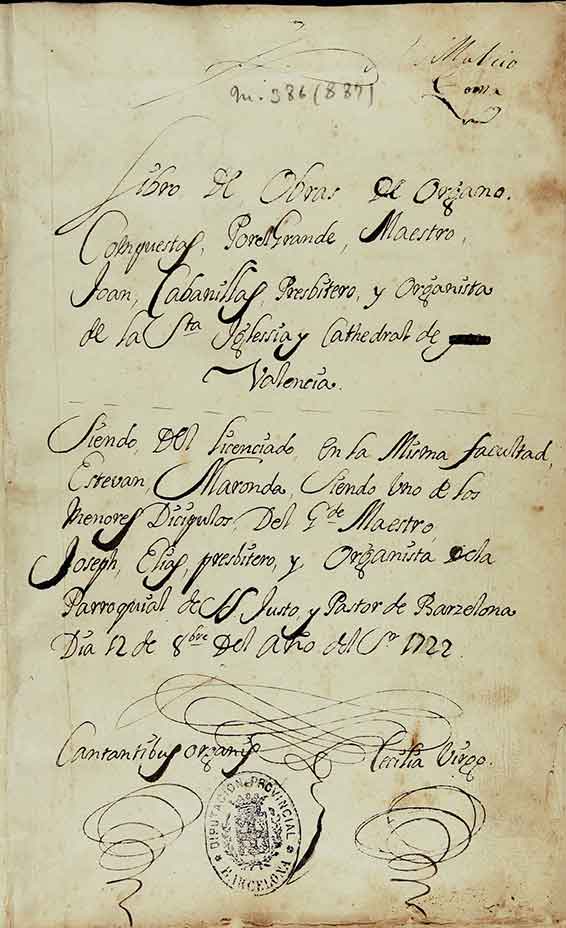 M. 386 (887)
Libro De Obras de Organo.
Conpuestas, Por el Grande, Maestro,
Joan, Cabanillas, Presbitero, y Organista
de la Sta Iglessia y Cathedral de
Valencia.
Siendo, Del Licenciado, en la Misma facultad,
Estevan, Maronda, Siendo Uno de los
Menores Dicipulos, Del Gde Maestro,
Joseph, Elias, presbitero, y, Organista de la
Parroquial de SS Justo y Pastor de Barzelona
Dia 12 de 8bre Del Año del Sr 1722
Cantantibus organis Cecilia Virgo.
DIPUTACION PROVINCIAL
BARCELONA